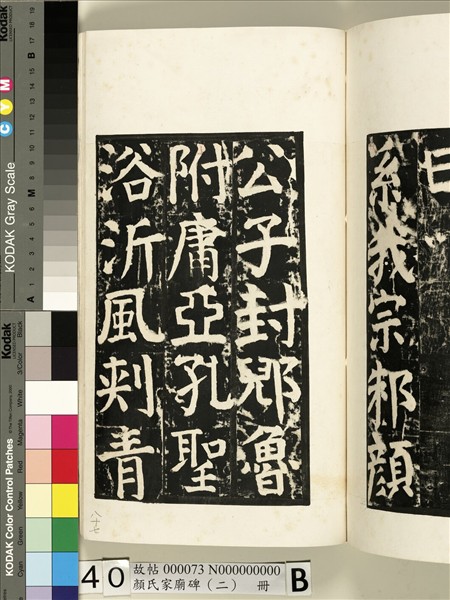 系我宗邾顏
公子封郳魯
附庸亞孔聖
浴沂風刾青
八十七
40
故帖 000073 N000000000
顏氏家廟碑（二） 冊
B
Kodak
KODAK Gray Scale
C Y M
A 1 2 3 4 5 6 M 8 9 10 11 12 13 14 15 B 17 18 19
Kodak
KODAK Color Control Patches
Blue Cyan Green Yellow Red Magenta White 3/Color Black